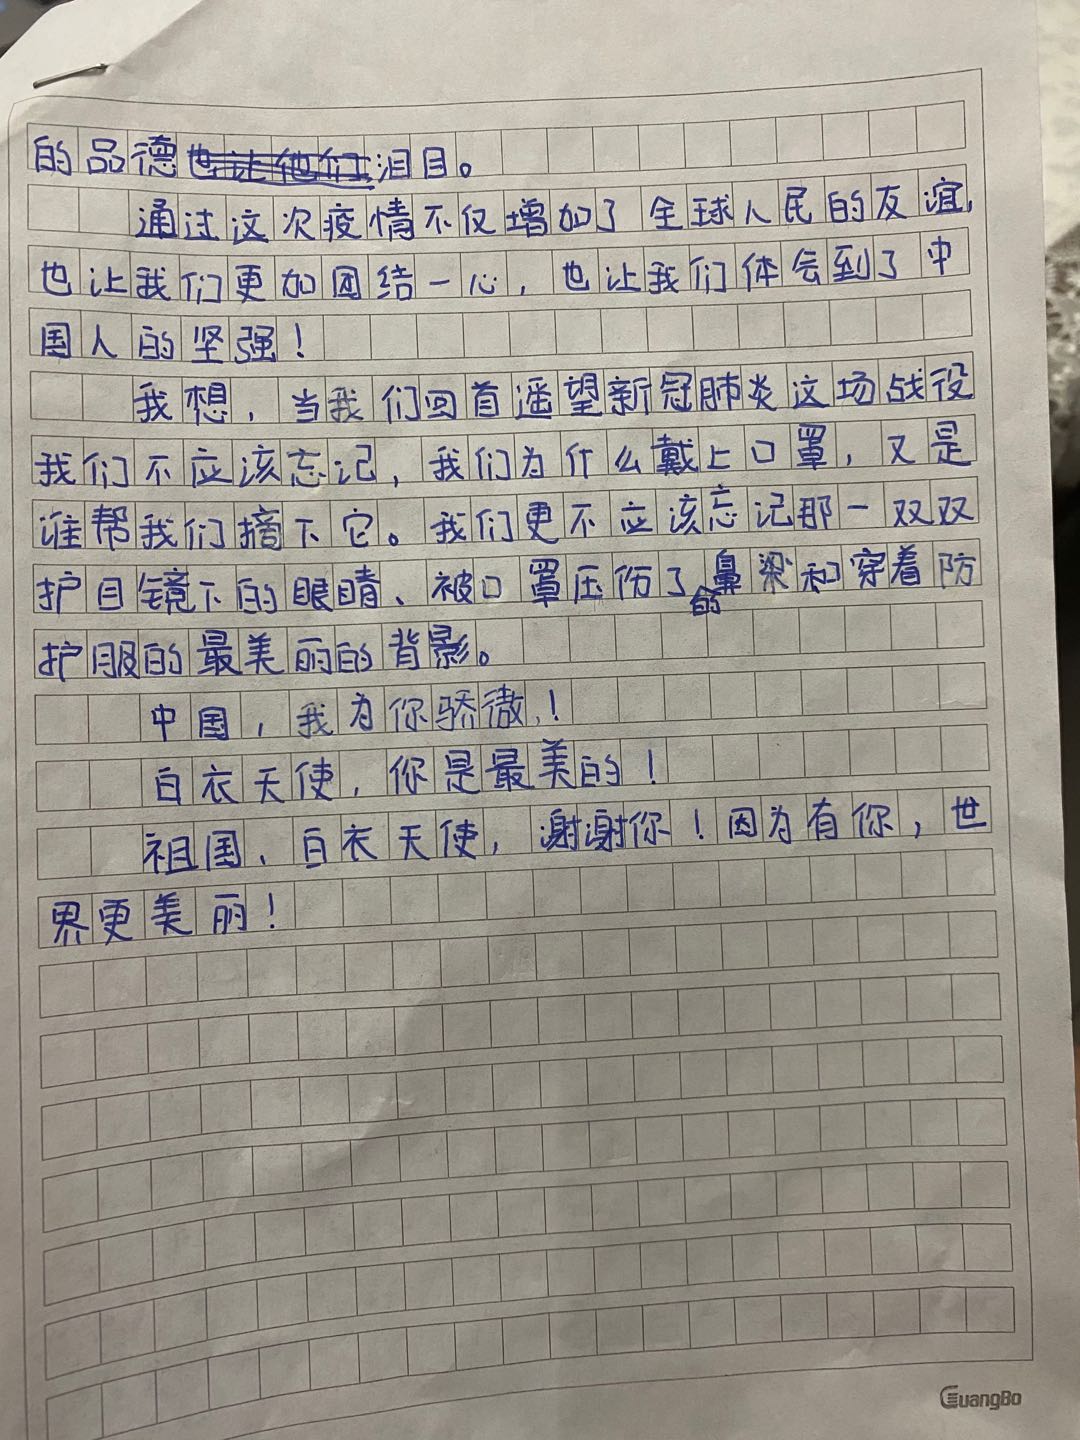 的品德也让他们泪目。
通过这次疫情不仅增加了全球人民的友谊,
也让我们更加团结一心,也让我们体会到了中
国人的坚强!
我想,当我们回首遥望新冠肺炎这场战役
我们不应该忘记,我们为什么戴上口罩,又是
谁帮我们摘下它。我们更不应该忘记那一双双
护目镜下的眼睛、被口罩压伤了的鼻梁和穿着防
护服的最美丽的背影。
中国,我为你骄傲!
白衣天使,你是最美的!
祖国、白衣天使,谢谢你!因为有你,世
界更美丽!
GuangBo